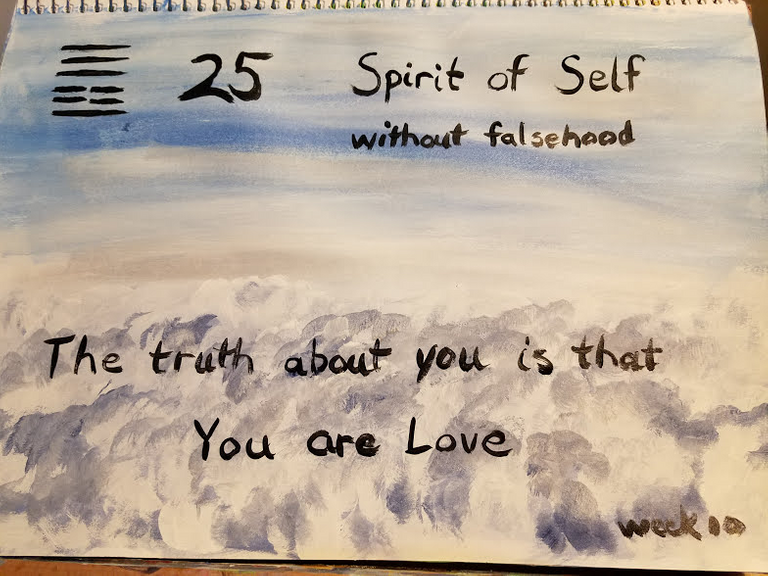 25 Spirit of Self
without falsehood
The truth about you is that
You are Love
week 10